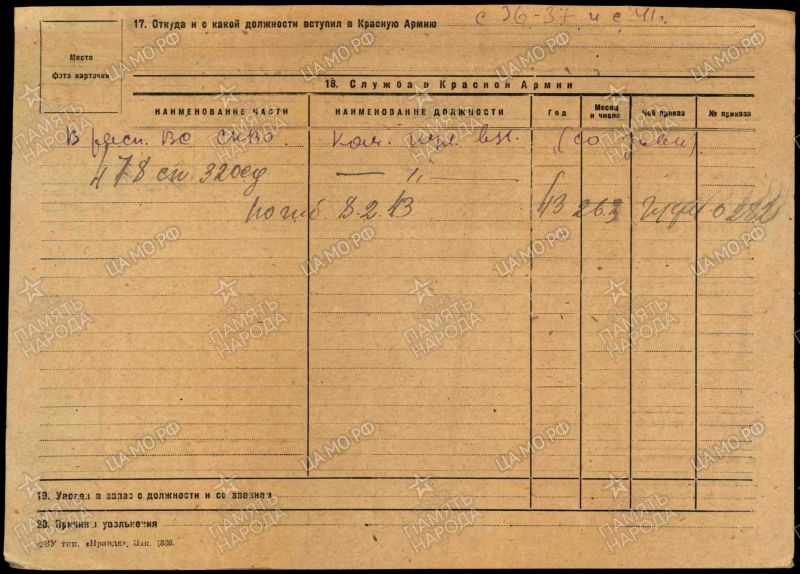 17. Откуда и с какой должности вступил в Красную Армию с 36-37 и с 41 г.
Место
фото карточки
18. Служба в Красной Армии
НАИМЕНОВАНИЕ ЧАСТИ НАИМЕНОВАНИЕ ДОЛЖНОСТИ Год Месяц и число Чей приказ № приказа
В расп. ВС СКВО. Ком. пул. вз.
478 сп 320 сд — " —
погиб 8.2.43 43 26.3 0282
19. Уволен в запас с должности и со званием
20. Причины увольнения
ФВУ тип. «Правда». Зак. 1836.
ПАМЯТЬ НАРОДА
ЦА МО РФ